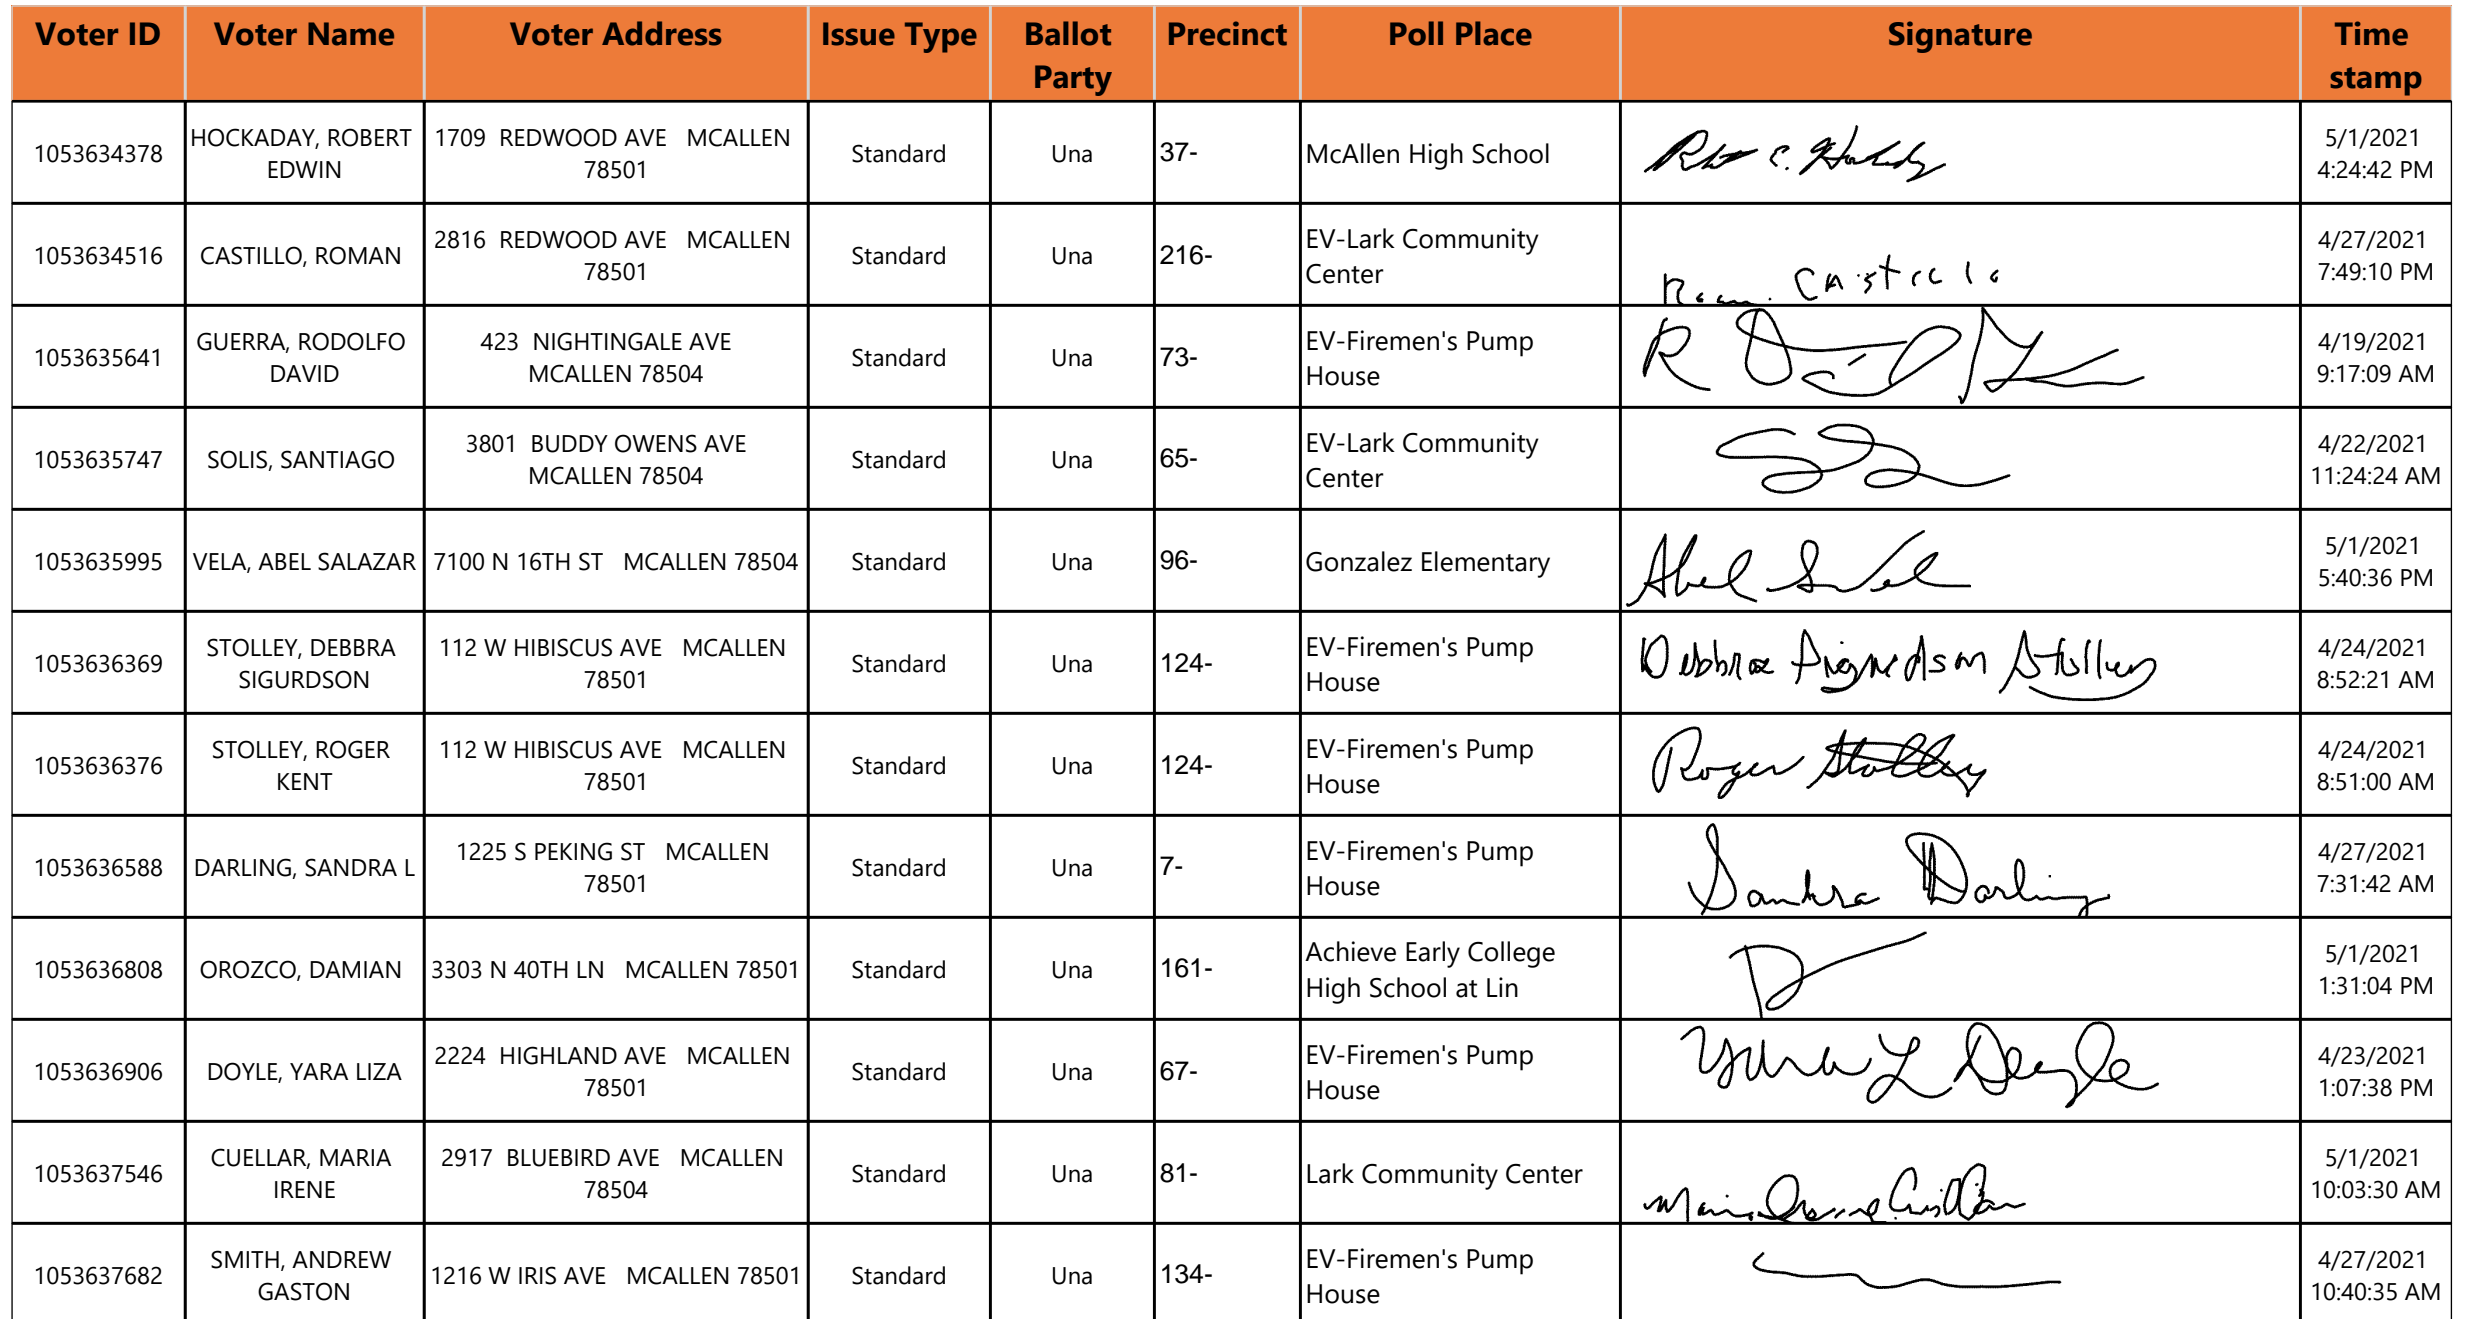 Voter ID Voter Name Voter Address Issue Type Ballot Party Precinct Poll Place Signature Time stamp
1053634378 HOCKADAY, ROBERT EDWIN 1709 REDWOOD AVE MCALLEN 78501 Standard Una 37- McAllen High School 5/1/2021 4:24:42 PM
1053634516 CASTILLO, ROMAN 2816 REDWOOD AVE MCALLEN 78501 Standard Una 216- EV-Lark Community Center 4/27/2021 7:49:10 PM
1053635641 GUERRA, RODOLFO DAVID 423 NIGHTINGALE AVE MCALLEN 78504 Standard Una 73- EV-Firemen's Pump House R 4/19/2021 9:17:09 AM
1053635747 SOLIS, SANTIAGO 3801 BUDDY OWENS AVE MCALLEN 78504 Standard Una 65- EV-Lark Community Center 4/22/2021 11:24:24 AM
1053635995 VELA, ABEL SALAZAR 7100 N 16TH ST MCALLEN 78504 Standard Una 96- Gonzalez Elementary Abel S Vela 5/1/2021 5:40:36 PM
1053636369 STOLLEY, DEBBRA SIGURDSON 112 W HIBISCUS AVE MCALLEN 78501 Standard Una 124- EV-Firemen's Pump House Debbra Sigurdson Stolley 4/24/2021 8:52:21 AM
1053636376 STOLLEY, ROGER KENT 112 W HIBISCUS AVE MCALLEN 78501 Standard Una 124- EV-Firemen's Pump House Roger Stolley 4/24/2021 8:51:00 AM
1053636588 DARLING, SANDRA L 1225 S PEKING ST MCALLEN 78501 Standard Una 7- EV-Firemen's Pump House Sandra Darling 4/27/2021 7:31:42 AM
1053636808 OROZCO, DAMIAN 3303 N 40TH LN MCALLEN 78501 Standard Una 161- Achieve Early College High School at Lin 5/1/2021 1:31:04 PM
1053636906 DOYLE, YARA LIZA 2224 HIGHLAND AVE MCALLEN 78501 Standard Una 67- EV-Firemen's Pump House Yara L Doyle 4/23/2021 1:07:38 PM
1053637546 CUELLAR, MARIA IRENE 2917 BLUEBIRD AVE MCALLEN 78504 Standard Una 81- Lark Community Center Maria Irene Cuellar 5/1/2021 10:03:30 AM
1053637682 SMITH, ANDREW GASTON 1216 W IRIS AVE MCALLEN 78501 Standard Una 134- EV-Firemen's Pump House 4/27/2021 10:40:35 AM